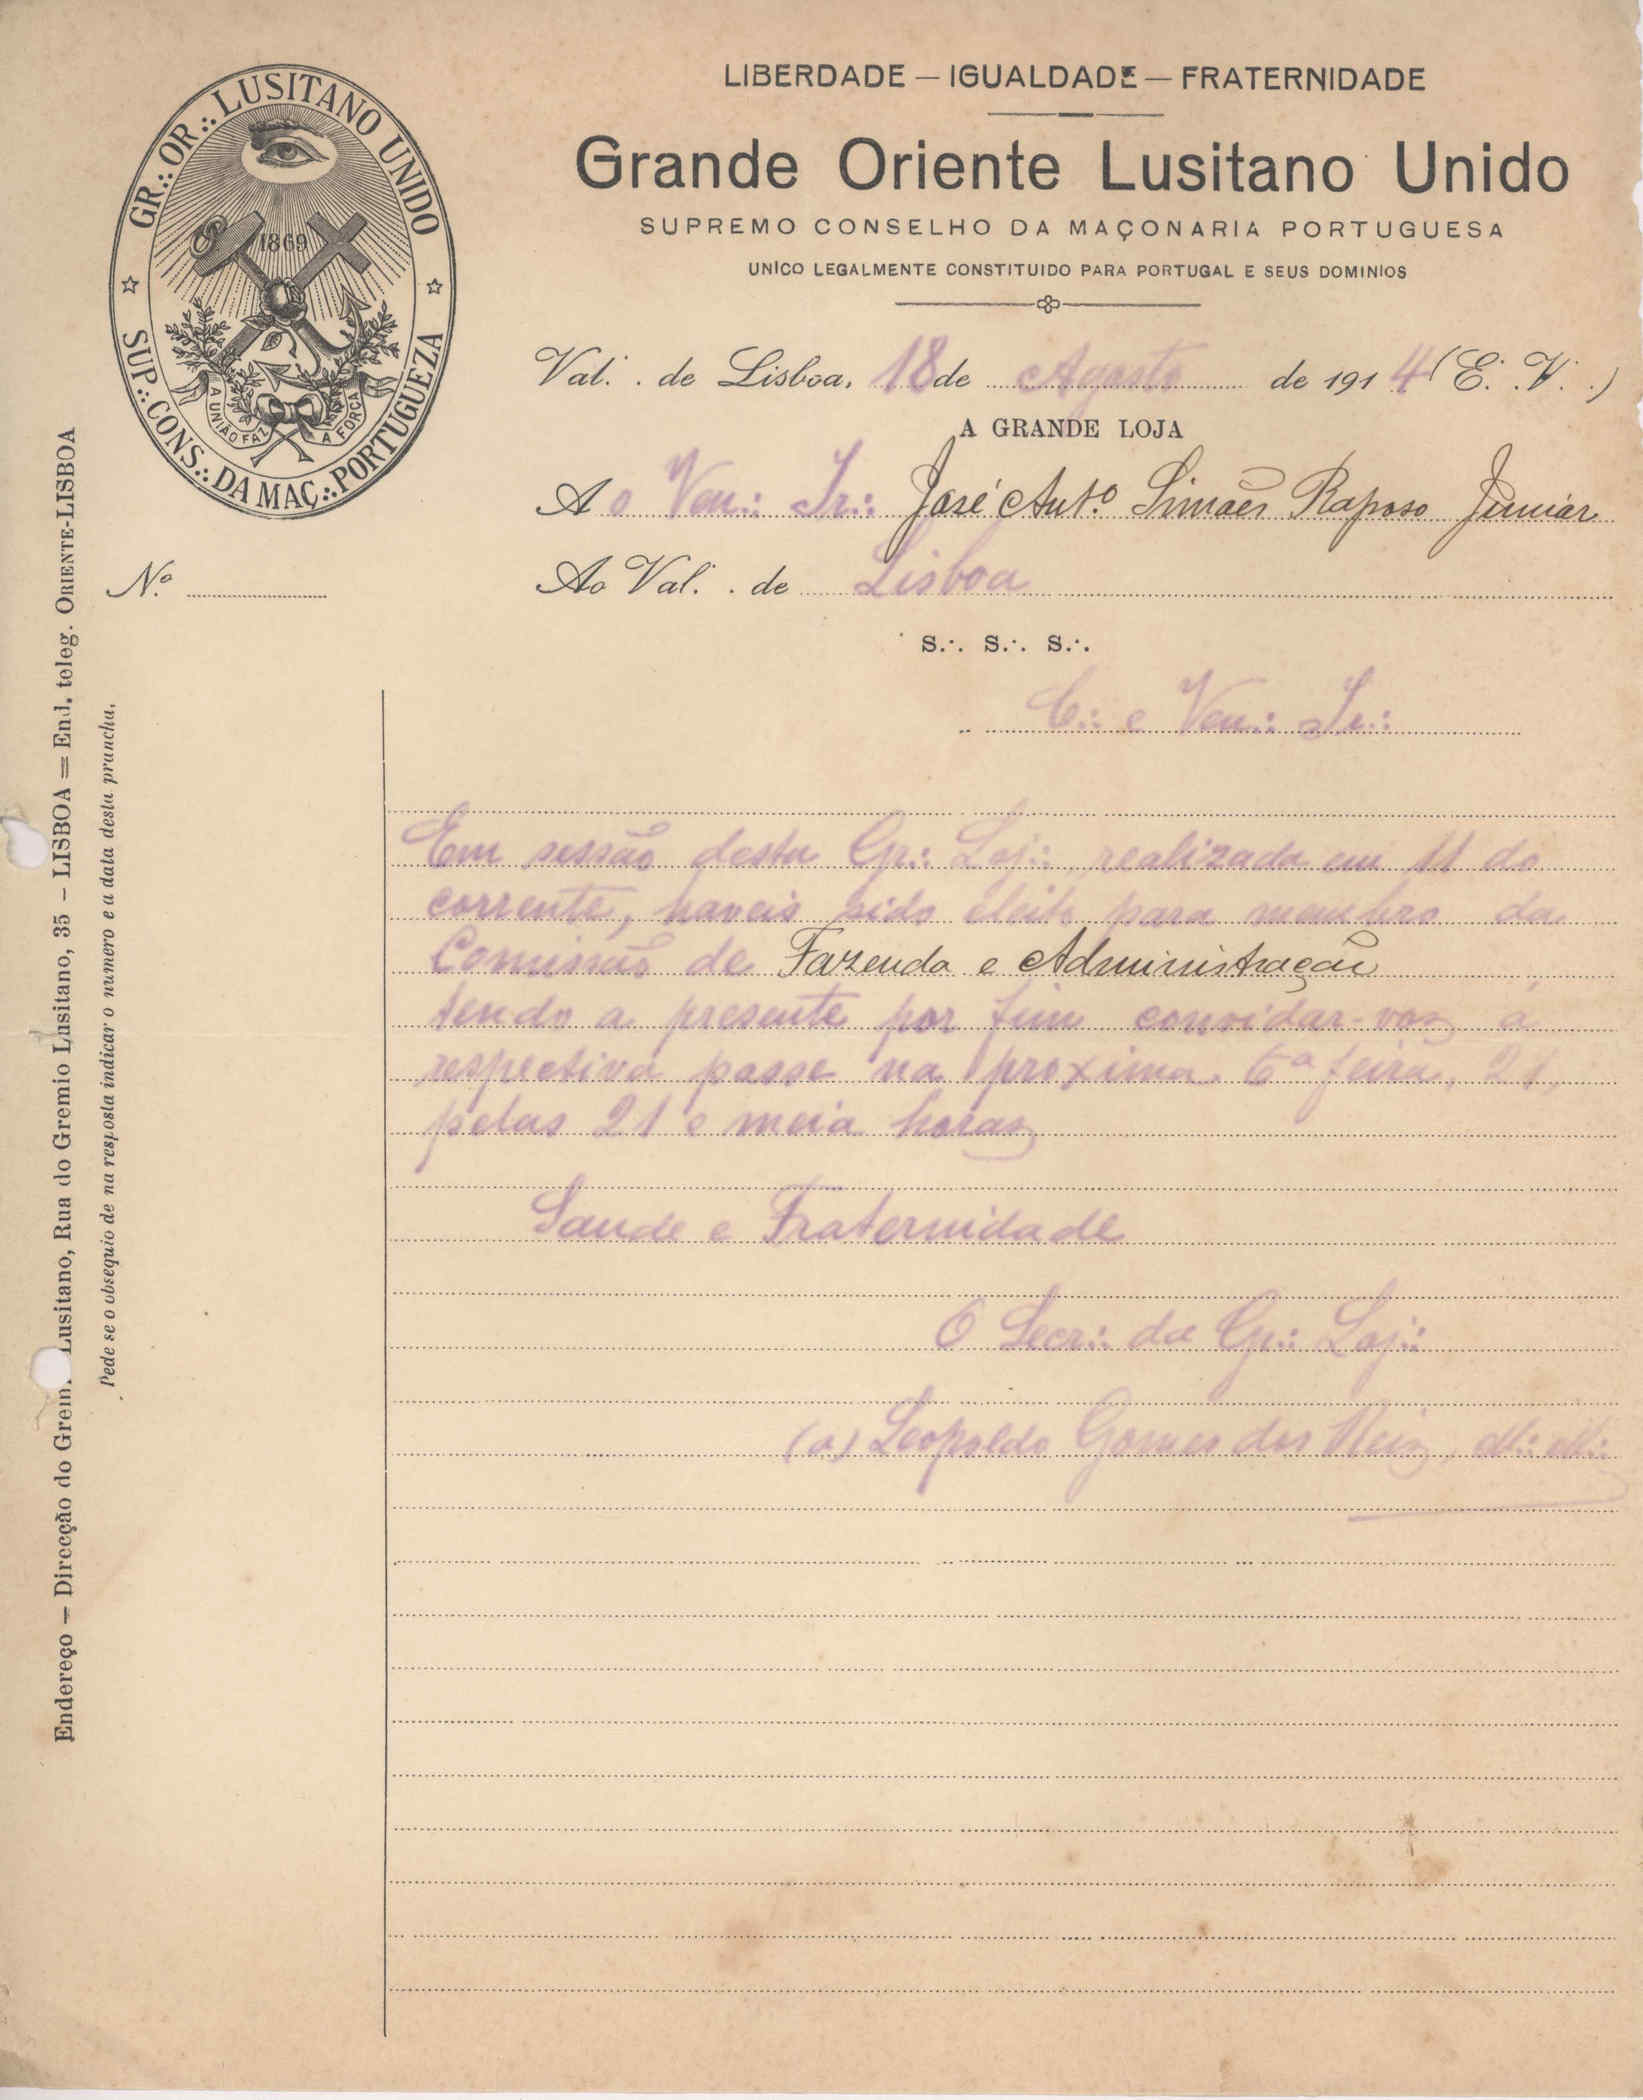 LIBERDADE — IGUALDADE — FRATERNIDADE
Grande Oriente Lusitano Unido
SUPREMO CONSELHO DA MAÇONARIA PORTUGUESA
UNICO LEGALMENTE CONSTITUIDO PARA PORTUGAL E SEUS DOMINIOS
GR.: OR.: LUSITANO UNIDO
1869
A UNIÃO FAZ A FORÇA
SUP.: CONS.: DA MAÇ.: PORTUGUEZA
Val.·. de Lisboa, 18 de Agosto de 1914 (E.·. V.·.)
A GRANDE LOJA
Ao Ven.: Ir.: José Ant.º Simões Raposo Junior
Ao Val.·. de Lisboa
N.º
S.·. S.·. S.·.
C.: e Ven.: Ir.:
Em sessão desta Gr.: Loj.: realizada em 11 do
corrente, haveis sido eleito para membro da
Comissão de Fazenda e Administração,
tendo a presente por fim convidar-vos a
respectiva posse na proxima 6ª feira, 21,
pelas 21 e meia horas
Saude e Fraternidade
O Secr.: da Gr.: Loj.:
(a) Leopoldo Gomes dos Reis, M.: M.:
Endereço — Direcção do Grem. Lusitano, Rua do Gremio Lusitano, 35 — LISBOA = End. teleg. ORIENTE-LISBOA
Pede se o obsequio de na resposta indicar o numero e a data desta prancha.